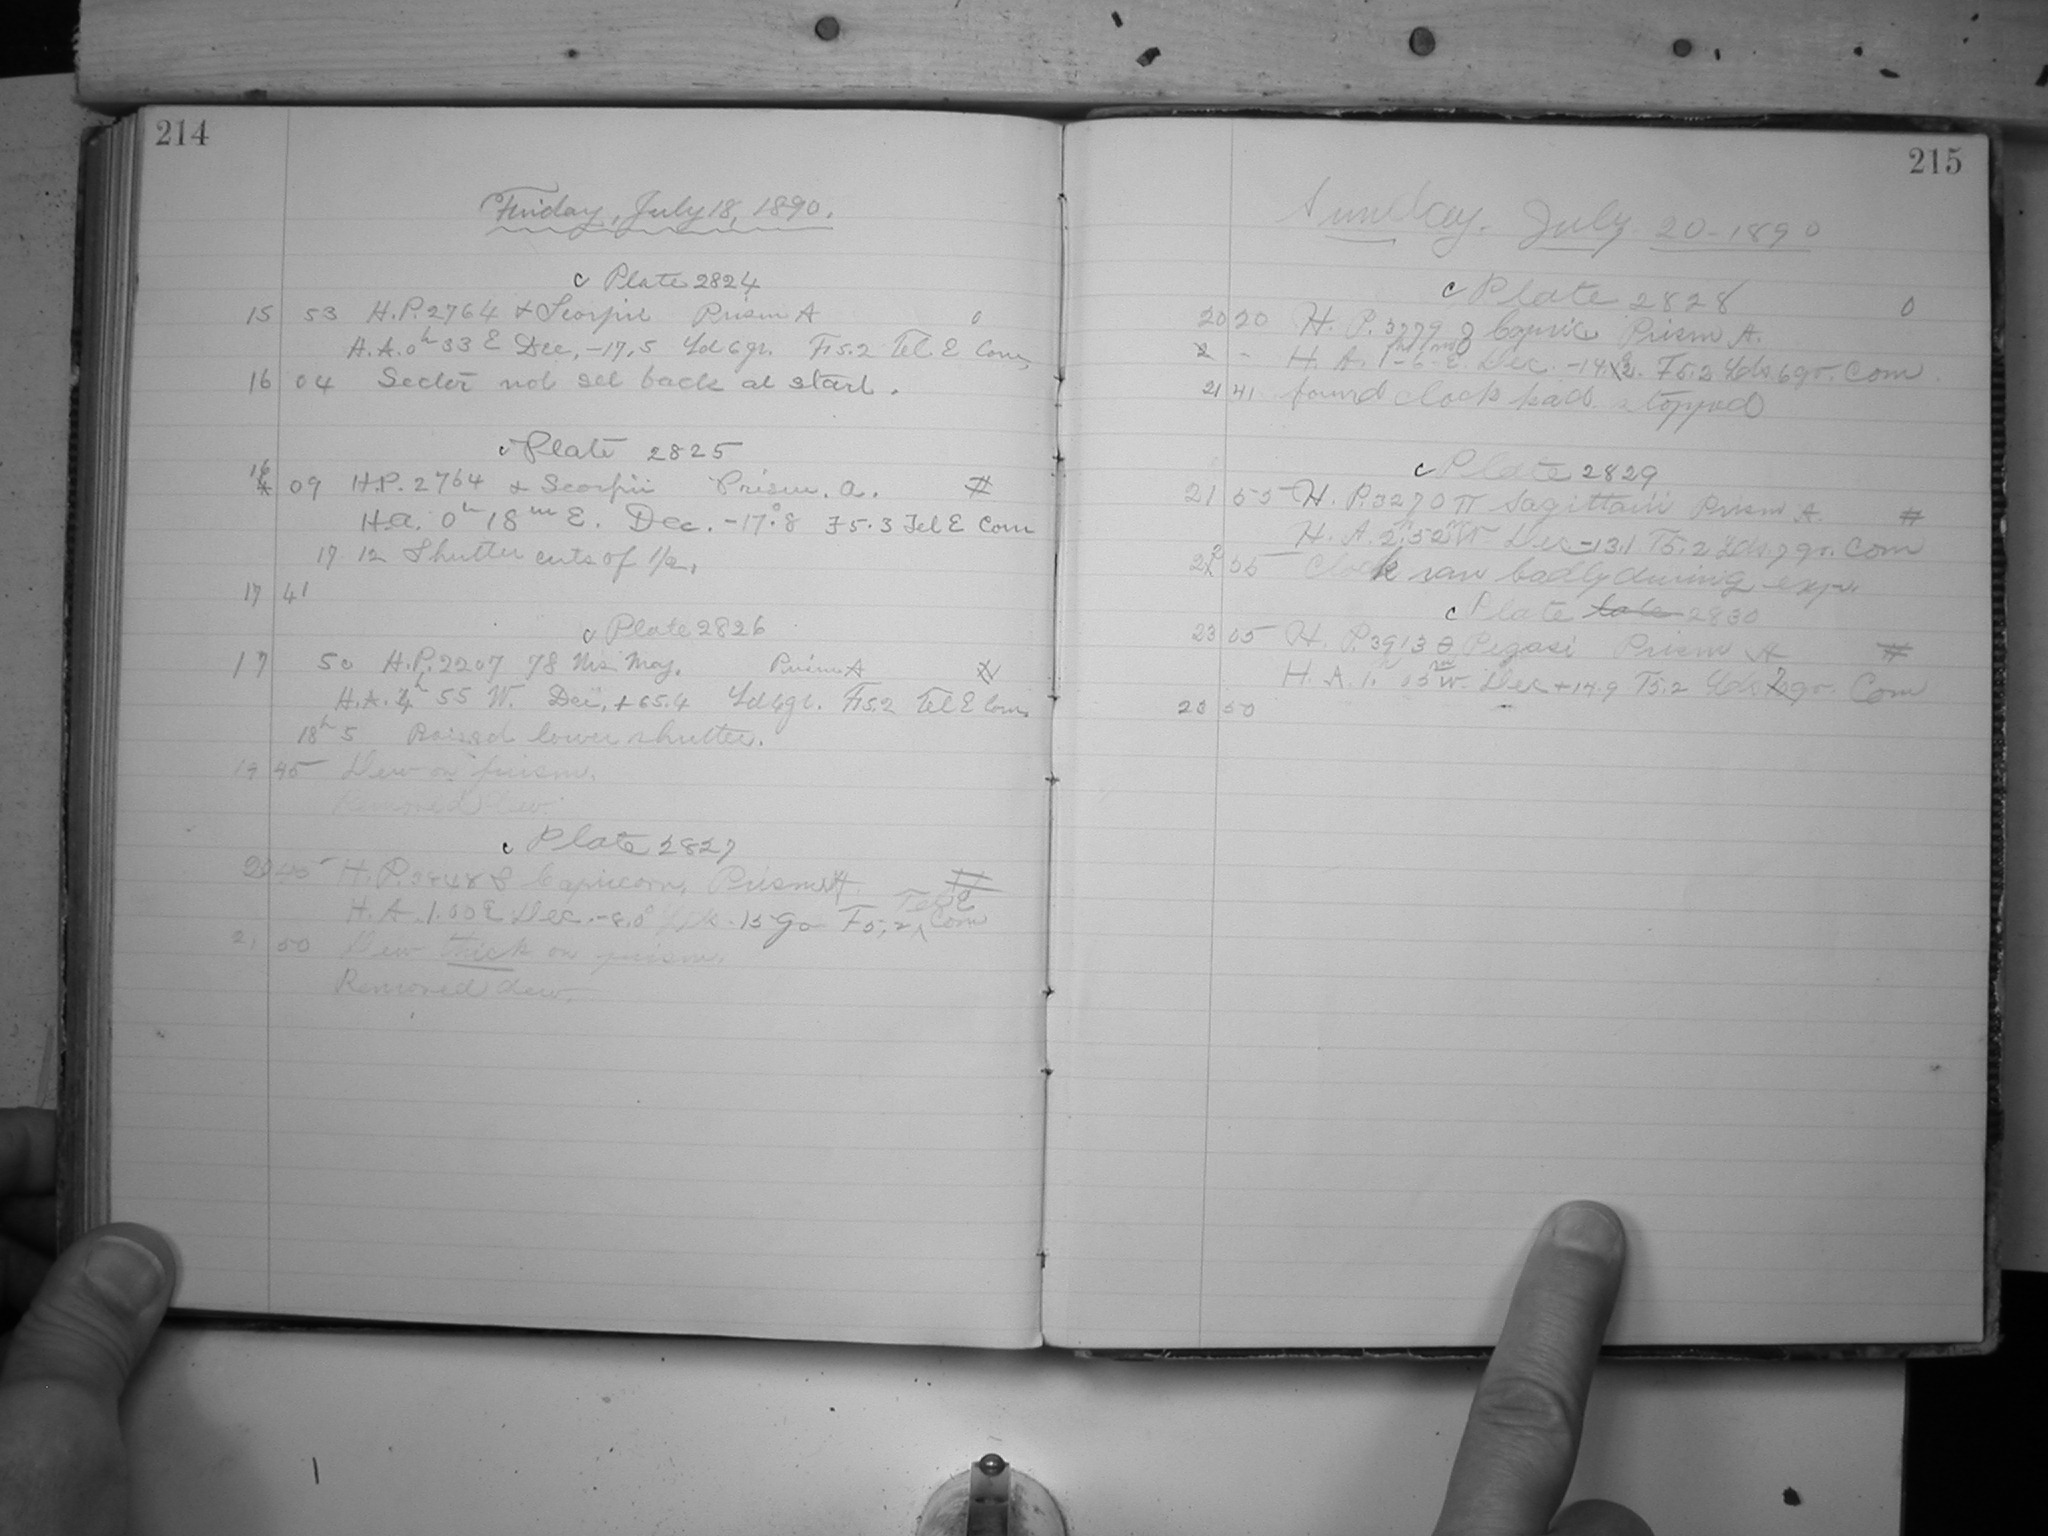 214
Friday, July 18, 1890.
c Plate 2824
15 53 H.P. 2764 α Scorpii Prism A 0
H.A. 0h 33 E Dec, -17.5 Lds 6 gr. F5.2 Tel. E Com.
16 04 Sector not set back at start.
c Plate 2825
16 09 H.P. 2764 α Scorpii Prism. A. #
H.A. 0h 18m E. Dec. -17.°8 F5.3 Tel E Com
17 12 Shutter cuts of 1/2.
17 41
c Plate 2826
17 50 H.P. 2207 78 Urs. Maj. Prism A
H.A. 4h 55 W. Dec, +65.4 Lds 4 gr. F5.2 Tel E Com.
18h 5 Raised lower shutter.
19 45 Dew on prism.
Removed dew.
c Plate 2827
20 40 H.P. 3848 δ Capricorn. Prism A. #
H.A. 1.00 E Dec. -8.0 Lds. 15 gr F5.2 Tel E Com
21 50 Dew thick on prism.
Removed dew.
215
Sunday. July 20-1890
c Plate 2828 0
20 20 H. P. 3779 Capric Prism A.
H. A. 1 h - 6 m E. Dec. -14. F5.2 Lds 6 gr. Com.
21 41 found clock had stopped
c Plate 2829
21 55 H. P. 3270 π Sagittarii Prism A. #
H. A. 2h 52m W Dec -13.1 F5.2 Lds. 7 gr. Com
22 55 Clock ran badly during exp.
c Plate 2830
23 05 H. P. 3913 θ Pegasi Prism A #
H. A. 1.h 05m W. Dec +14.9 F5.2 Lds gr. Com
23 50